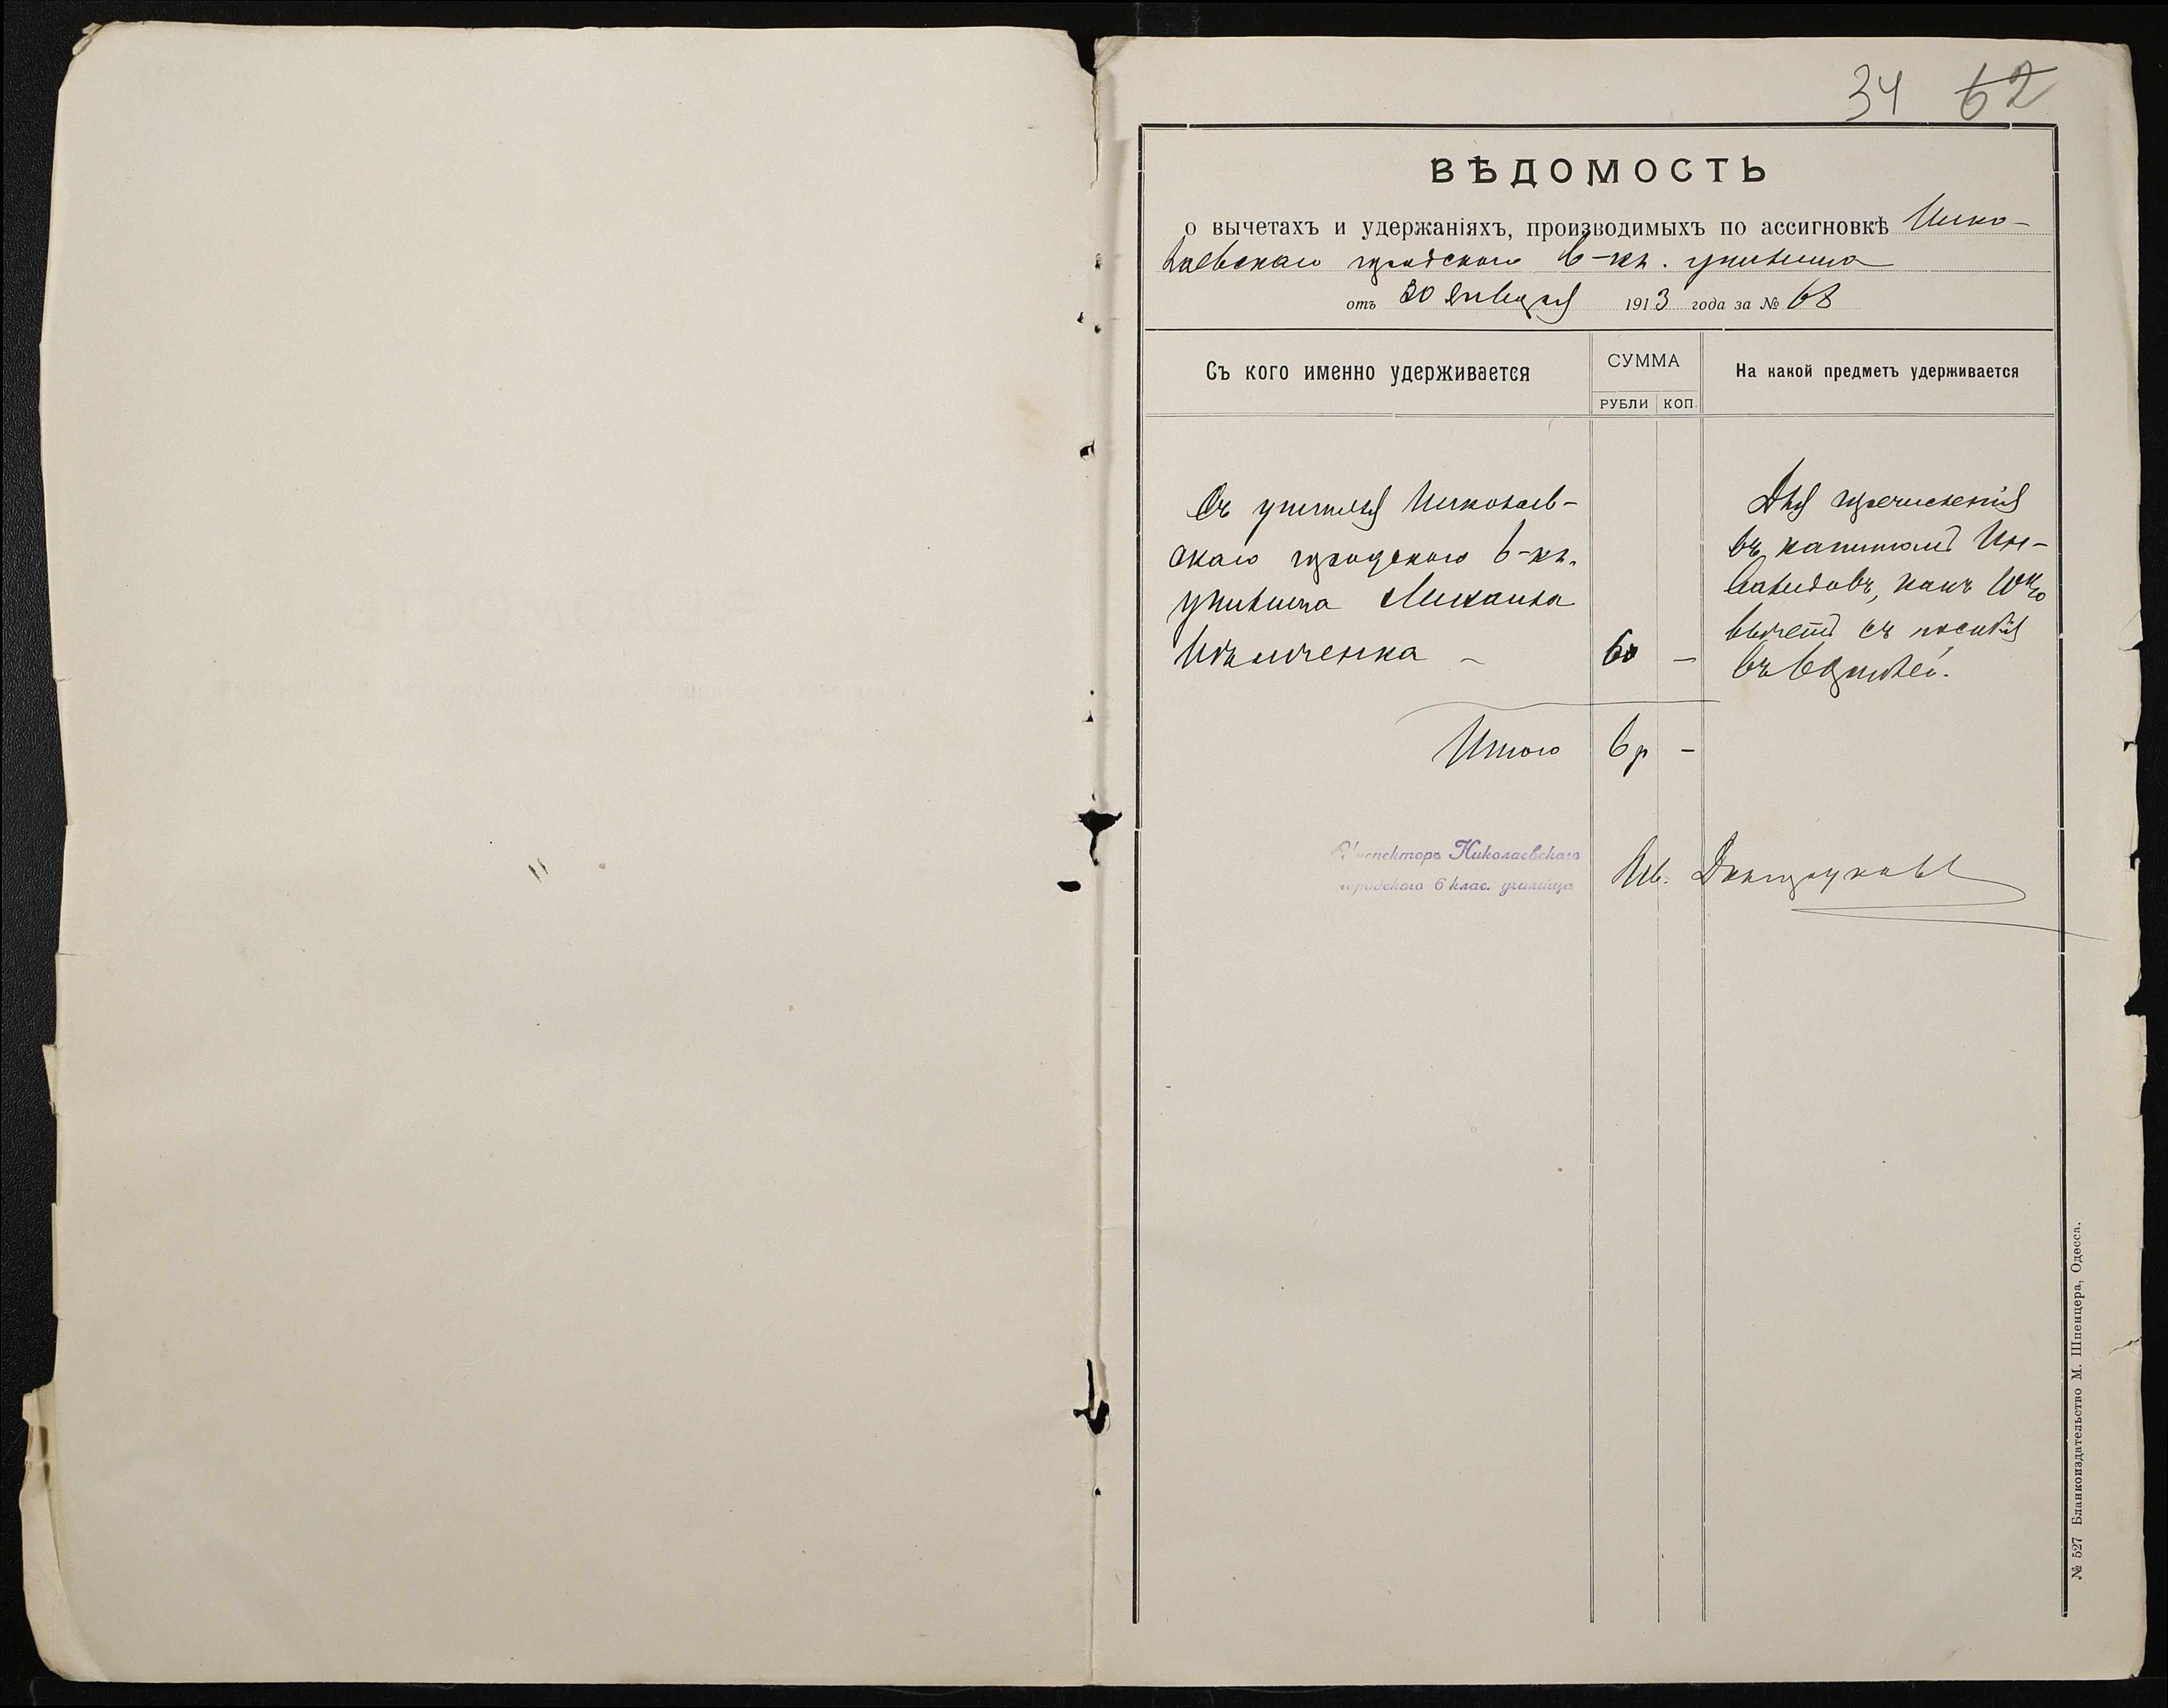 34 62
ВѢДОМОСТЬ
о вычетахъ и удержаніяхъ, производимыхъ по ассигновкѣ Нико-
лаевскаго городского 6-кл. училища
отъ 30 Января 1913 года за № 68
Съ кого именно удерживается
СУММА
РУБЛИ КОП.
На какой предметъ удерживается
Съ учителя Николаев-
скаго городского 6-кл.
училища Михаила
Ильченка - 6 -
Для причисленія
въ капиталъ Ин-
валидовъ, какъ 10%
вычетъ съ пособія
Итого 6 р -
Инспекторъ Николаевскаго
городского 6 клас. училища
Ив.
№ 527 Бланкоиздательство М. Шпенцера, Одесса.